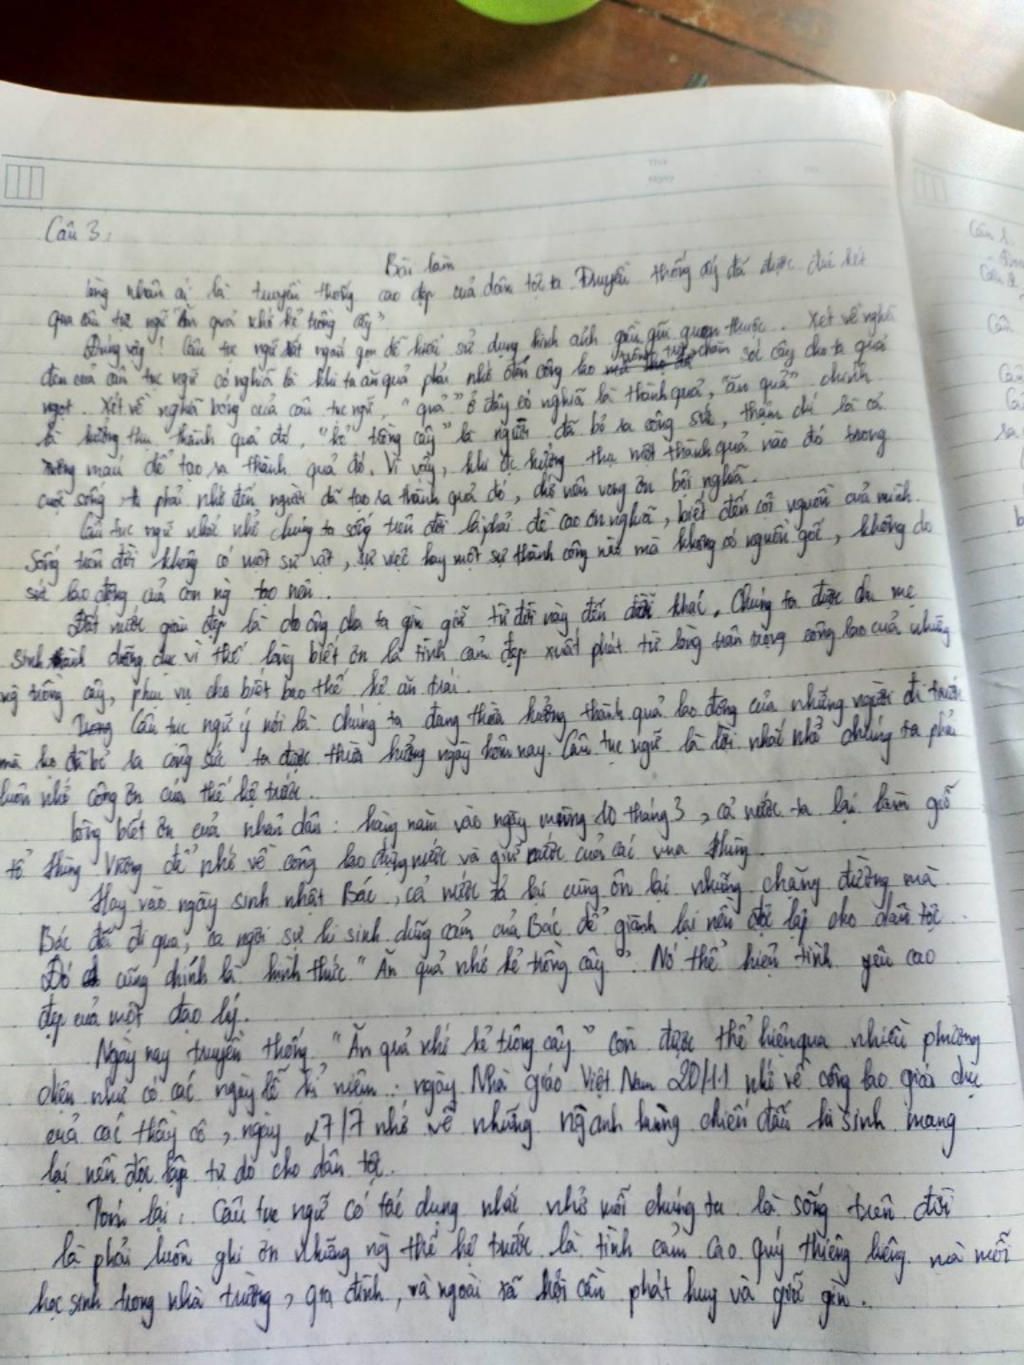 Câu 3:
Bài làm
Lòng nhân ái là truyền thống cao đẹp của dân tộc ta. Truyền thống ấy đã được đúc kết
qua câu tục ngữ "Ăn quả nhớ kẻ trồng cây"
Đúng vậy! Câu tục ngữ rất ngắn gọn dễ hiểu sử dụng hình ảnh gần gũi quen thuộc. Xét về nghĩa
đen của câu tục ngữ có nghĩa là khi ta ăn quả phải nhớ đến công lao chăm sóc cây cho ta quả
ngọt. Xét về nghĩa bóng của câu tục ngữ, "quả" ở đây có nghĩa là thành quả, "ăn quả" chính
là hưởng thụ thành quả đó, "kẻ trồng cây" là người đã bỏ ra công sức, thậm chí là cả
máu để tạo ra thành quả đó. Vì vậy, khi đc hưởng thụ một thành quả nào đó trong
cuộc sống ta phải nhớ đến người đã tạo ra thành quả đó, chớ nên vong ơn bội nghĩa.
Câu tục ngữ nhắc nhở chúng ta sống trên đời là phải đề cao ơn nghĩa, biết đến cội nguồn của mình.
Sống trên đời không có một sự vật, sự việc hay một sự thành công nào mà không có nguồn gốc, không do
sức lao động của con ng tạo nên.
Đất nước giàu đẹp là do ông cha ta gìn giữ từ đời này đến đời khác. Chúng ta được cha mẹ
sinh thành dưỡng dục vì thế lòng biết ơn là tình cảm đẹp xuất phát từ lòng trân trọng công lao của những
ng trồng cây, phục vụ cho biết bao thế kẻ ăn trái.
Câu tục ngữ ý nói là chúng ta đang thừa hưởng thành quả lao động của những người đi trước
mà họ đã bỏ ra công sức ta được thừa hưởng ngày hôm nay. Câu tục ngữ là lời nhắc nhở chúng ta phải
luôn nhớ công ơn của thế hệ trước.
Lòng biết ơn của nhân dân: hàng năm vào ngày mùng 10 tháng 3, cả nước ta lại làm giỗ
tổ Hùng Vương để nhớ về công lao dựng nước và giữ nước của các vua Hùng.
Hay vào ngày sinh nhật Bác, cả nước ta lại cùng ôn lại những chặng đường mà
Bác đã đi qua, ca ngợi sự hi sinh dũng cảm của Bác để giành lại nền độc lập cho dân tộc.
Đó cũng chính là hình thức "Ăn quả nhớ kẻ trồng cây". Nó thể hiện tình yêu cao
đẹp của một đạo lý.
Ngày nay truyền thống "Ăn quả nhớ kẻ trồng cây" còn được thể hiện qua nhiều phương
diện như có các ngày lễ kỉ niệm: ngày Nhà giáo Việt Nam 20/11 nhớ về công lao giáo dục
của các thầy cô, ngày 27/7 nhớ về những ng anh hùng chiến đấu hi sinh mang
lại nền độc lập tự do cho dân tộc.
Tóm lại: Câu tục ngữ có tác dụng nhắc nhở mỗi chúng ta là sống trên đời
là phải luôn ghi ơn những ng thế hệ trước là tình cảm cao quý thiêng liêng mà mỗi
học sinh trong nhà trường, gia đình, và ngoài xã hội cần phát huy và giữ gìn.